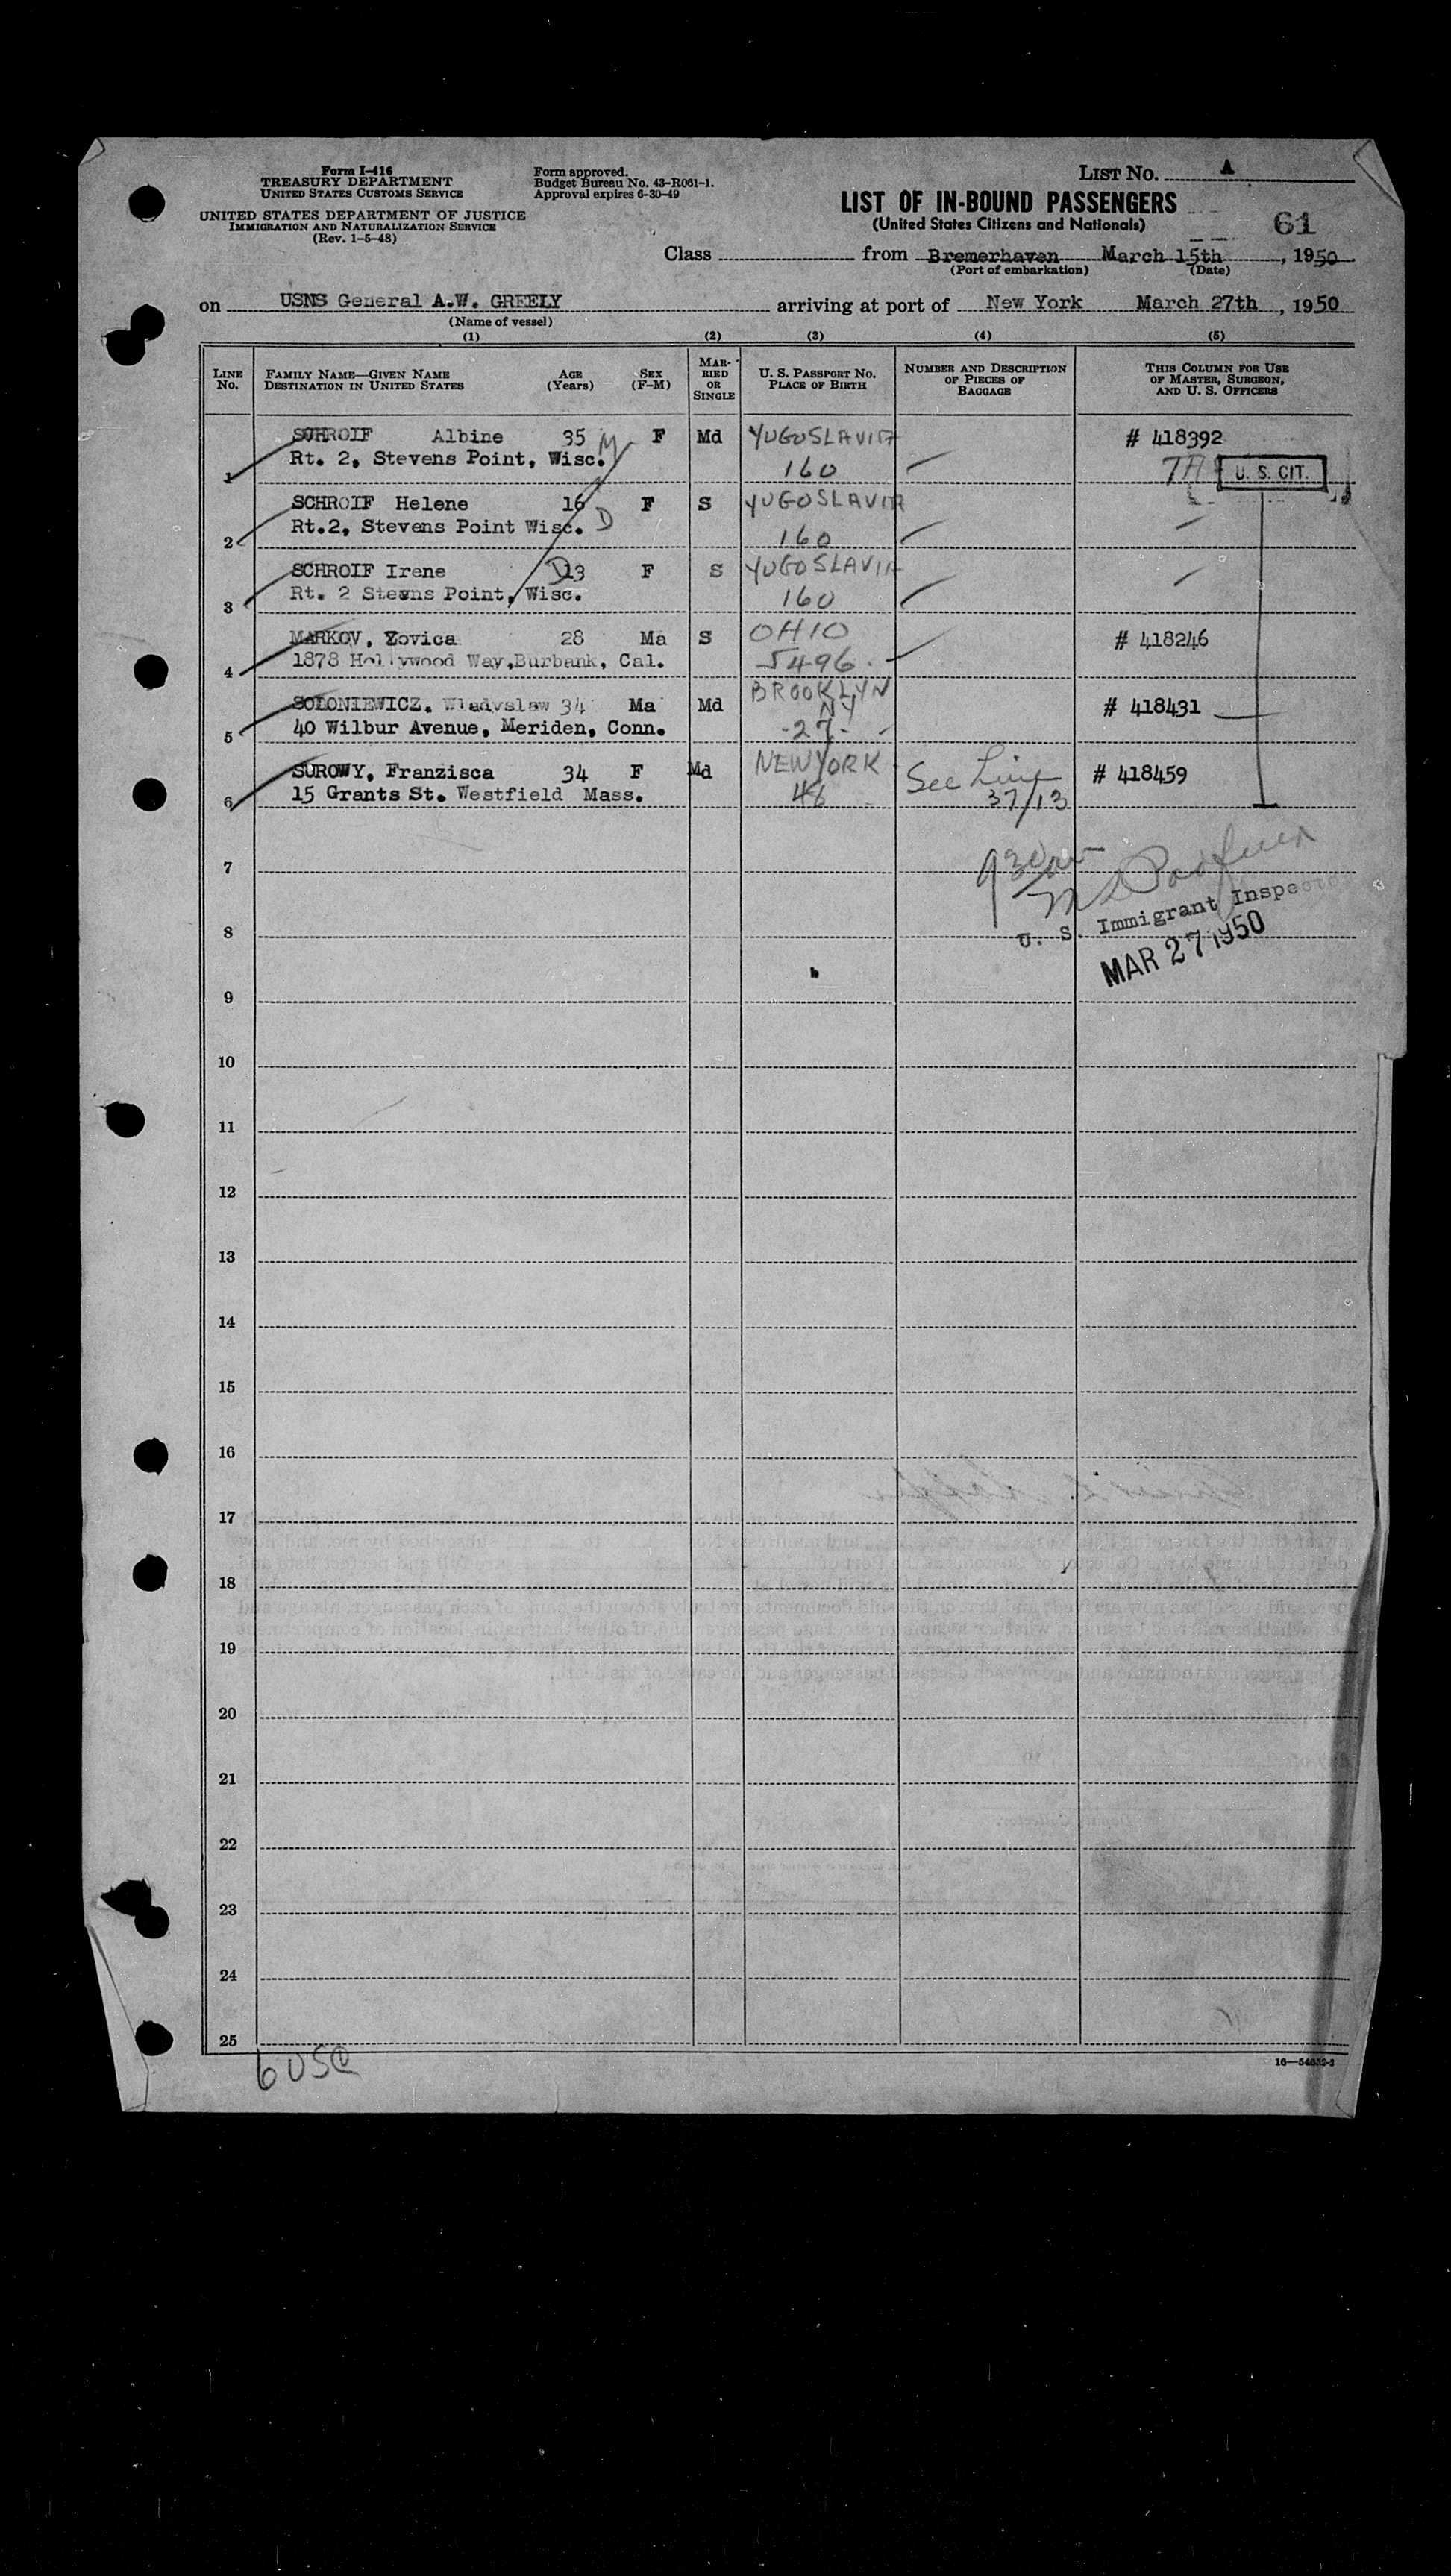 Form I-416
TREASURY DEPARTMENT
UNITED STATES CUSTOMS SERVICE
UNITED STATES DEPARTMENT OF JUSTICE
IMMIGRATION AND NATURALIZATION SERVICE
(Rev. 1-5-48)
Form approved.
Budget Bureau No. 43-R061-1.
Approval expires 6-30-49
LIST No. A
LIST OF IN-BOUND PASSENGERS
(United States Citizens and Nationals)
61
Class from Bremerhaven March 15th, 1950
(Port of embarkation) (Date)
on USNS General A.W. GREELY arriving at port of New York March 27th, 1950
(Name of vessel)
(1) (2) (3) (4) (5)
LINE No.
FAMILY NAME—GIVEN NAME
DESTINATION IN UNITED STATES
AGE (Years)
SEX (F-M)
MARRIED OR SINGLE
U. S. PASSPORT NO.
PLACE OF BIRTH
NUMBER AND DESCRIPTION OF PIECES OF BAGGAGE
THIS COLUMN FOR USE OF MASTER, SURGEON, AND U. S. OFFICERS
SCHROIF Albine 35 M F Md YUGOSLAVIA # 418392
1 Rt. 2, Stevens Point, Wisc. 160 U. S. CIT.
SCHROIF Helene 16 F S YUGOSLAVIA
2 Rt.2, Stevens Point Wisc. D 160
SCHROIF Irene D 13 F S YUGOSLAVIA
3 Rt. 2 Stevns Point, Wisc. 160
MARKOV, Zovica 28 Ma S OHIO # 418246
4 1878 Hollywood Way, Burbank, Cal. 5496
SOLONIEWICZ. Wladyslaw 34 Ma Md BROOKLYN NY # 418431
5 40 Wilbur Avenue, Meriden, Conn. -27-
SUROWY, Franzisca 34 F Md NEW YORK See Line 37/13 # 418459
6 15 Grants St. Westfield Mass. 48
7
930am
8
U. S. Immigrant Inspector
MAR 27 1950
9
10
11
12
13
14
15
16
17
18
19
20
21
22
23
24
25
6 USC
16—54632-2